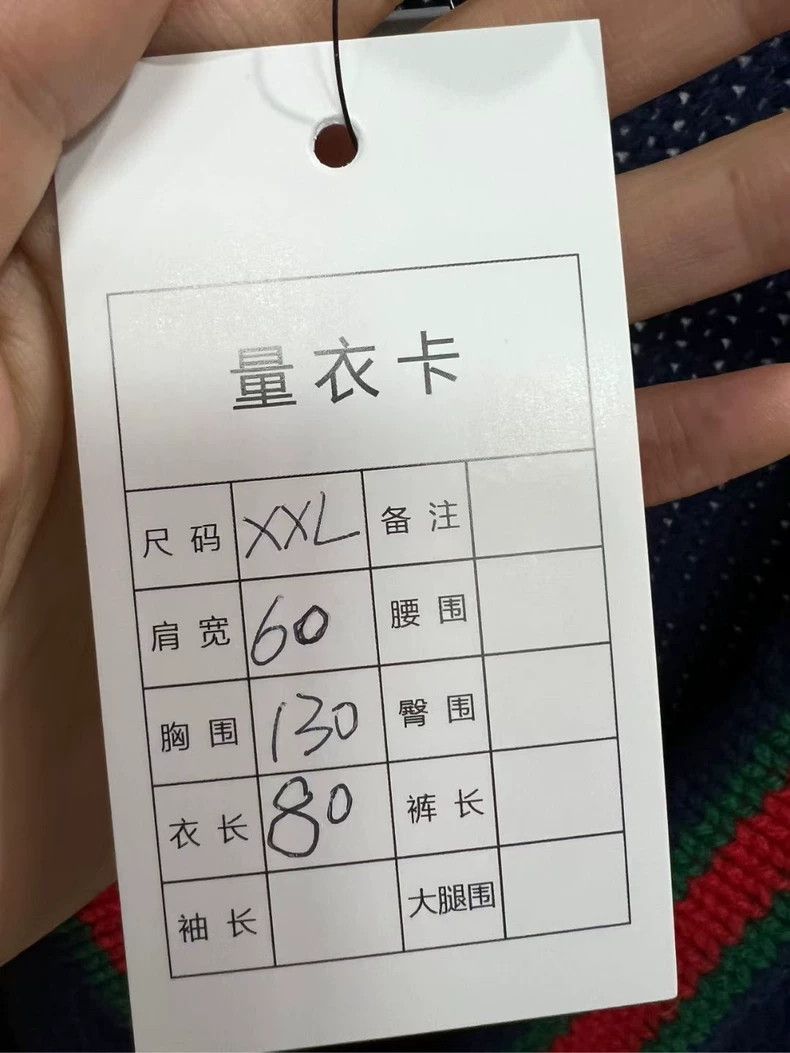 量衣卡
尺码 XXL 备注
肩宽 60 腰围
胸围 130 臀围
衣长 80 裤长
袖长 大腿围